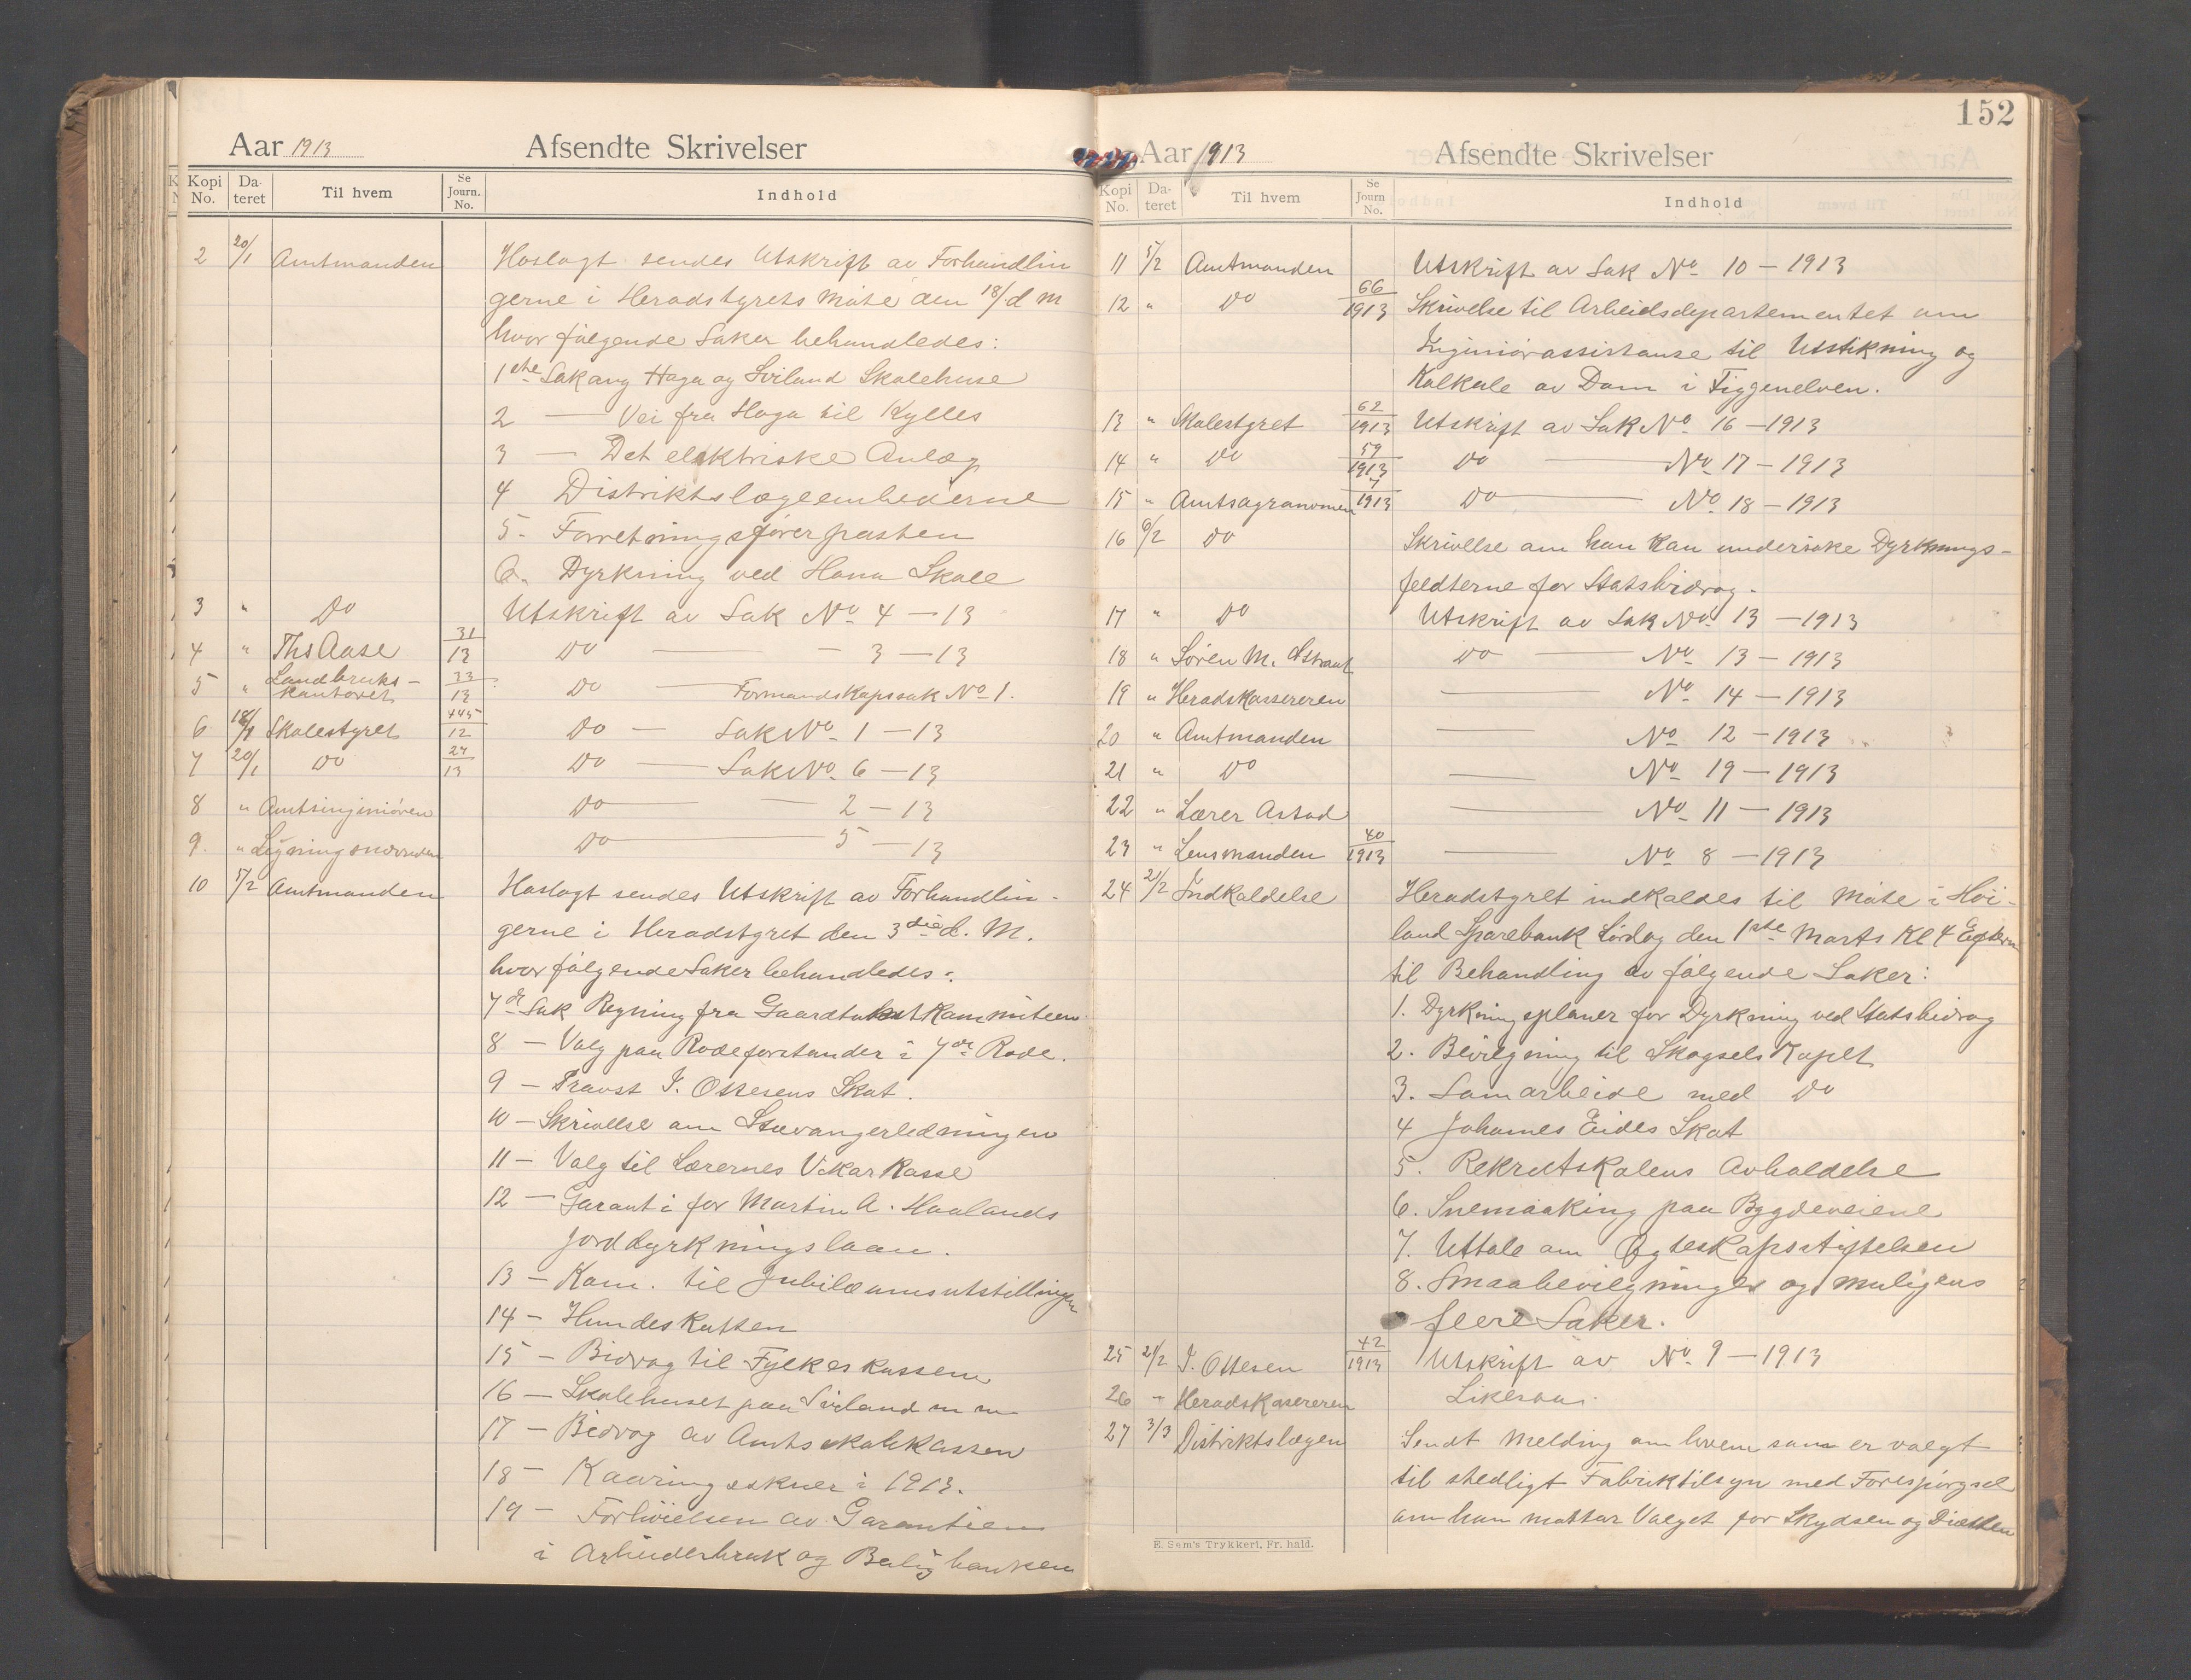 Aar 1913 Afsendte Skrivelser
Kopi No. Da-teret Til hvem Se Journ. No. Indhold
2 20/1 Amtmanden Hoslagt sendes Utskrift av Forhandlin
gerne i Heradstyrets Møte den 18/ d M
hvor følgende Saker behandledes:
1ste Sak ang Haga og Sviland Skolehuse
2 — Vei fra Hoga til Kylles
3 — Det elektriske Anlæg
4 Distriktslægeembederne
5. Forretningsførerposten
6. Dyrkning ved Hana Skole
3 " Do Utskrift av Sak No 4 — 13
4 " Ths Aase 31/13 Do — — 3 — 13
5 " Landbruks-
kontoret 33/13 Do — Formandskapssak No 1.
6 18/1 Skolestyret 445/12 Do — Sak No 1 — 13
7 20/1 Do 24/13 Do — Sak No 6 — 13
8 " Amtsingeniøren Do — — 2 — 13
9. " Ligningsnævnden Do — 5 — 13
10 5/2 Amtmanden Hoslagt sendes Utskrift av Forhandlin-
gerne i Heradstyret den 3die d. M.
hvor følgende Saker behandledes:
7de Sak Regning fra Gaardtakstkommiteen
8 — Valg paa Rodeforstander i 7de Rode.
9 — Provst I. Ottesens Skat.
10 — Skrivelse om Stavangerledningen
11 — Valg til Lærernes Vikarkasse
12 — Garanti for Martin A. Haalands
jorddyrkningslaan.
13 — Kom. til Jubilæumsutstillingen
14 — Hundeskatten
15 — Bidrag til Fylkeskassen
16 — Skolehuset paa Sviland m m
17 — Bidrag av Amtsskolekassen
18 — Kaaringsskuer i 1913.
19 — Forhøielsen av Garantien
i Arbeiderbruk og Boligbanken
152
Aar 1913 Afsendte Skrivelser
Kopi No. Da-teret Til hvem Se Journ No. Indhold
11 5/2 Amtmanden Utskrift av Sak No 10 — 1913
12 " Do 66/1913 Skrivelse til Arbeidsdepartementet om
Ingeniørassistanse til Utstikning og
Kalkule av Dam i Figgenelven.
13 " Skolestyret 62/1913 Utskrift av Sak No 16 — 1913
14 " Do 59/1913 Do — No 17 — 1913
15 " Amtsagronomen 7/1913 Do — No 18 — 1913
16 6/2 Do Skrivelse om han kan undersøke Dyrknings-
feldterne for Statsbidrag.
17 " Do Utskrift av Sak No 13 — 1913
18 " Søren M. Do — No 13 — 1913
19 " Heradskassereren — No 14 — 1913
20 " Amtmanden — No 12 — 1913
21 " Do — No 19 — 1913
22 " Lærer Astad — No 11 — 1913
23 " Lensmanden 40/1913 — No 8 — 1913
24 21/2 Indkaldelse Heradstyret indkaldes til Møte i Høi-
land Sparebank Lørdag den 1ste Marts Kl 4 Efterm
til Behandling av følgende Saker:
1. Dyrkningsplaner for Dyrkning ved Statsbidrag
2. Bevilgning til Skogselskapet
3. Samarbeide med Do
4 Johannes Eides Skat
5. Rekrutskolens Avholdelse
6. Snemaaking paa Bygdeveiene
7. Uttale om Egteskapsstiftelsen
8. Smaabevilgninger og muligens
flere Saker.
25 21/2 I. Ottesen 42/1913 Utskrift av No 9 — 1913
26 " Heradskassereren Likesaa.
27 3/3 Distriktslægen Sendt Melding om hvem som er valgt
til stedligt Fabriktilsyn med Forespørgsel
om han mottar Valget for Skydsen og Diætten
E. Sem's Trykkeri, Fr. hald.